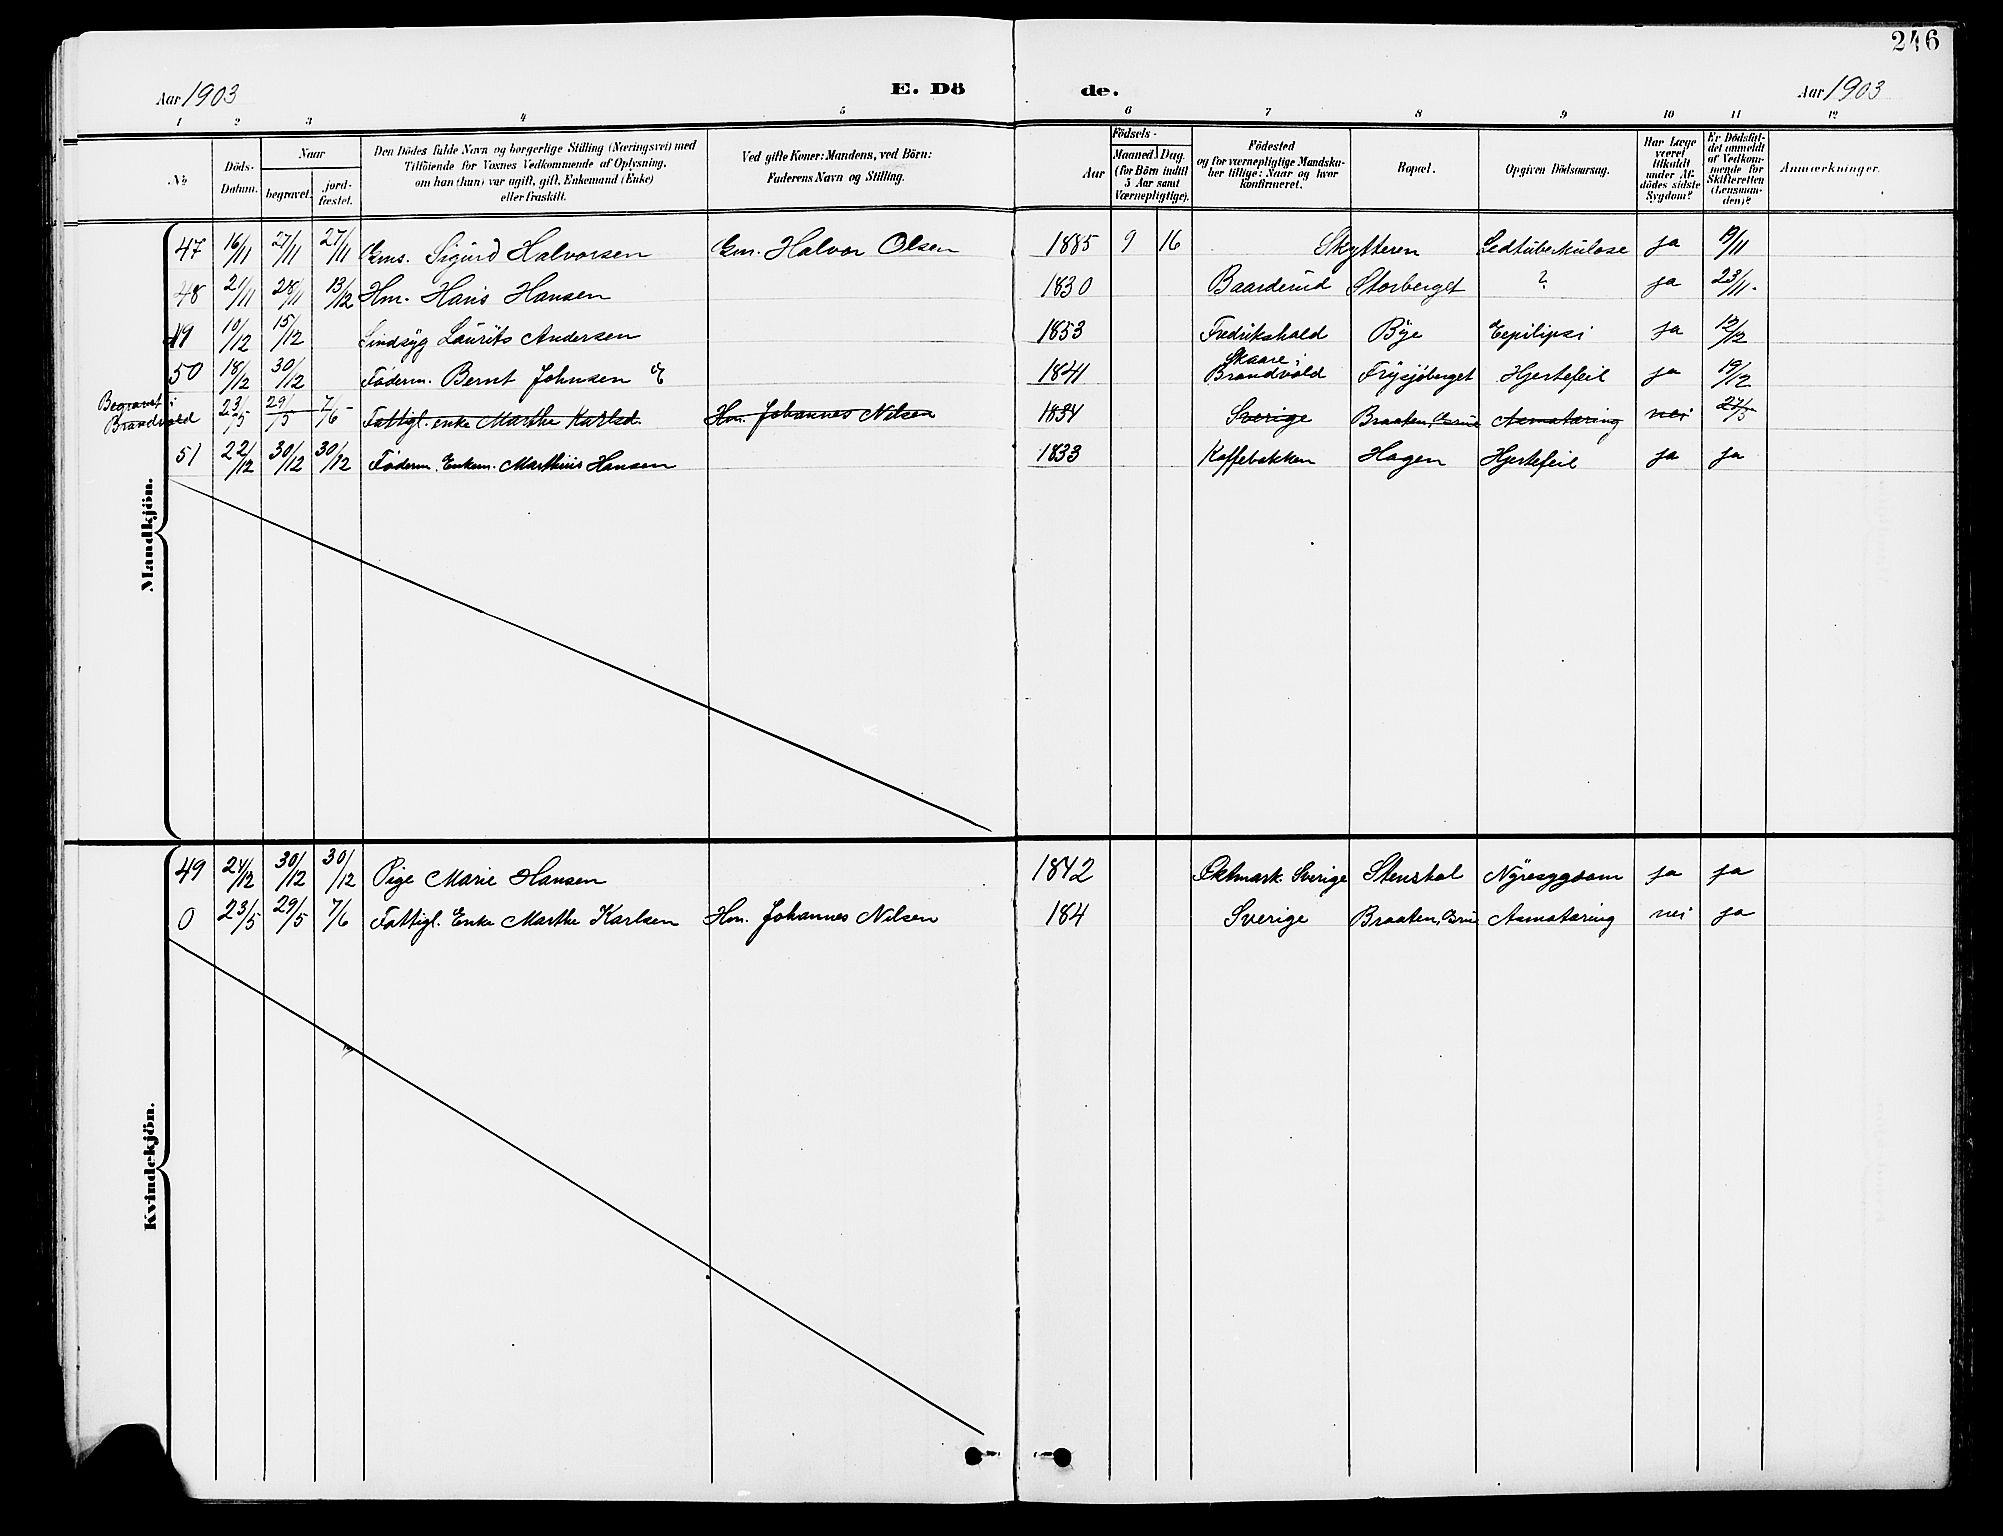 246
Aar 1903 E. Dö de. Aar 1903
1 2 3 4 5 6 7 8 9 10 11 12
No. Döds-Datum. Naar begravet. jord-fæstet. Den Dödes fulde Navn og borgerlige Stilling (Næringsvei) med Tilföiende for Voxnes Vedkommende af Oplysning, om han (hun) var ugift, gift, Enkemand (Enke) eller fraskilt. Ved gifte Koner: Mandens, ved Börn: Faderens Navn og Stilling. Födsels- Aar Maaned Dag. (for Börn indtil 5 Aar samt Værnepligtige). Födested og for værnepligtige Mandskaber tillige: Naar og hvor konfirmeret. Bopæl. Opgiven Dödsaarsag. Har Læge været tilkaldt under Afdödes sidste Sygdom? Er Dödsfaldet anmeldt af Vedkommende for Skifteretten (Lensmanden)? Anmærkninger.
Mandkjön.
47 16/11 27/11 27/11 Gms. Sigurd Halvorsen Gm. Halvor Olsen 1885 9 16 Skytteren Ledtuberkulose ja 19/11
48 21/11 28/11 13/12 Hm. Hans Hansen 1830 Baarderud Storberget ? ja 23/11.
49 10/12 15/12 Sindsyg Laurits Andersen 1853 Fredrikshald Bÿe Eepilipsi ja 12/12
50 18/12 30/12 Föderm. Bernt Johnsen 1841 Skaare i Brandvold Frysjöberget Hjertefeil ja 19/12
Begravet i Brandvold 23/5 29/5 7/6 Fattigl. enke Marthe Karlsd. Hm. Johannes Nilsen 1834 Sverige Braaten, Grue Asmatæring nei 27/5
51 22/12 30/12 30/12 Föderm. Enkem. Marthius Hansen 1833 Kaffebakken Hagen Hjertefeil ja ja
Kvindekjön.
49 24/12 30/12 30/12 Pige Marie Hansen 1842 Østmark. Sverige Stenstal Nÿresygdom ja ja
0 23/5 29/5 7/6 Fattigl. Enke Marthe Karlsen Hm. Johannes Nilsen 184 Sverige Braaten, Grue Asmatæring nei ja